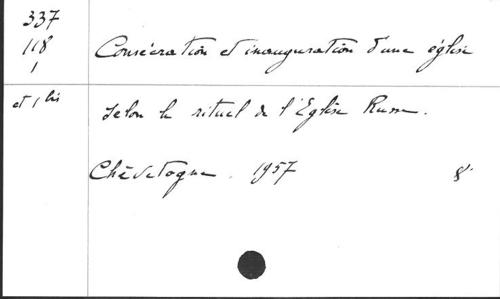 337
118
1
Consécration et inauguration d'une église
et 1 bis
selon le rituel de l'Eglise Russe.
Chèvetogne. 1957 8°